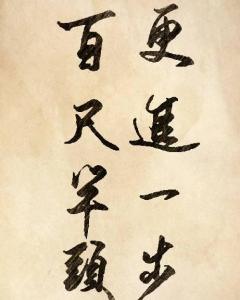 百尺竿頭
更進一步